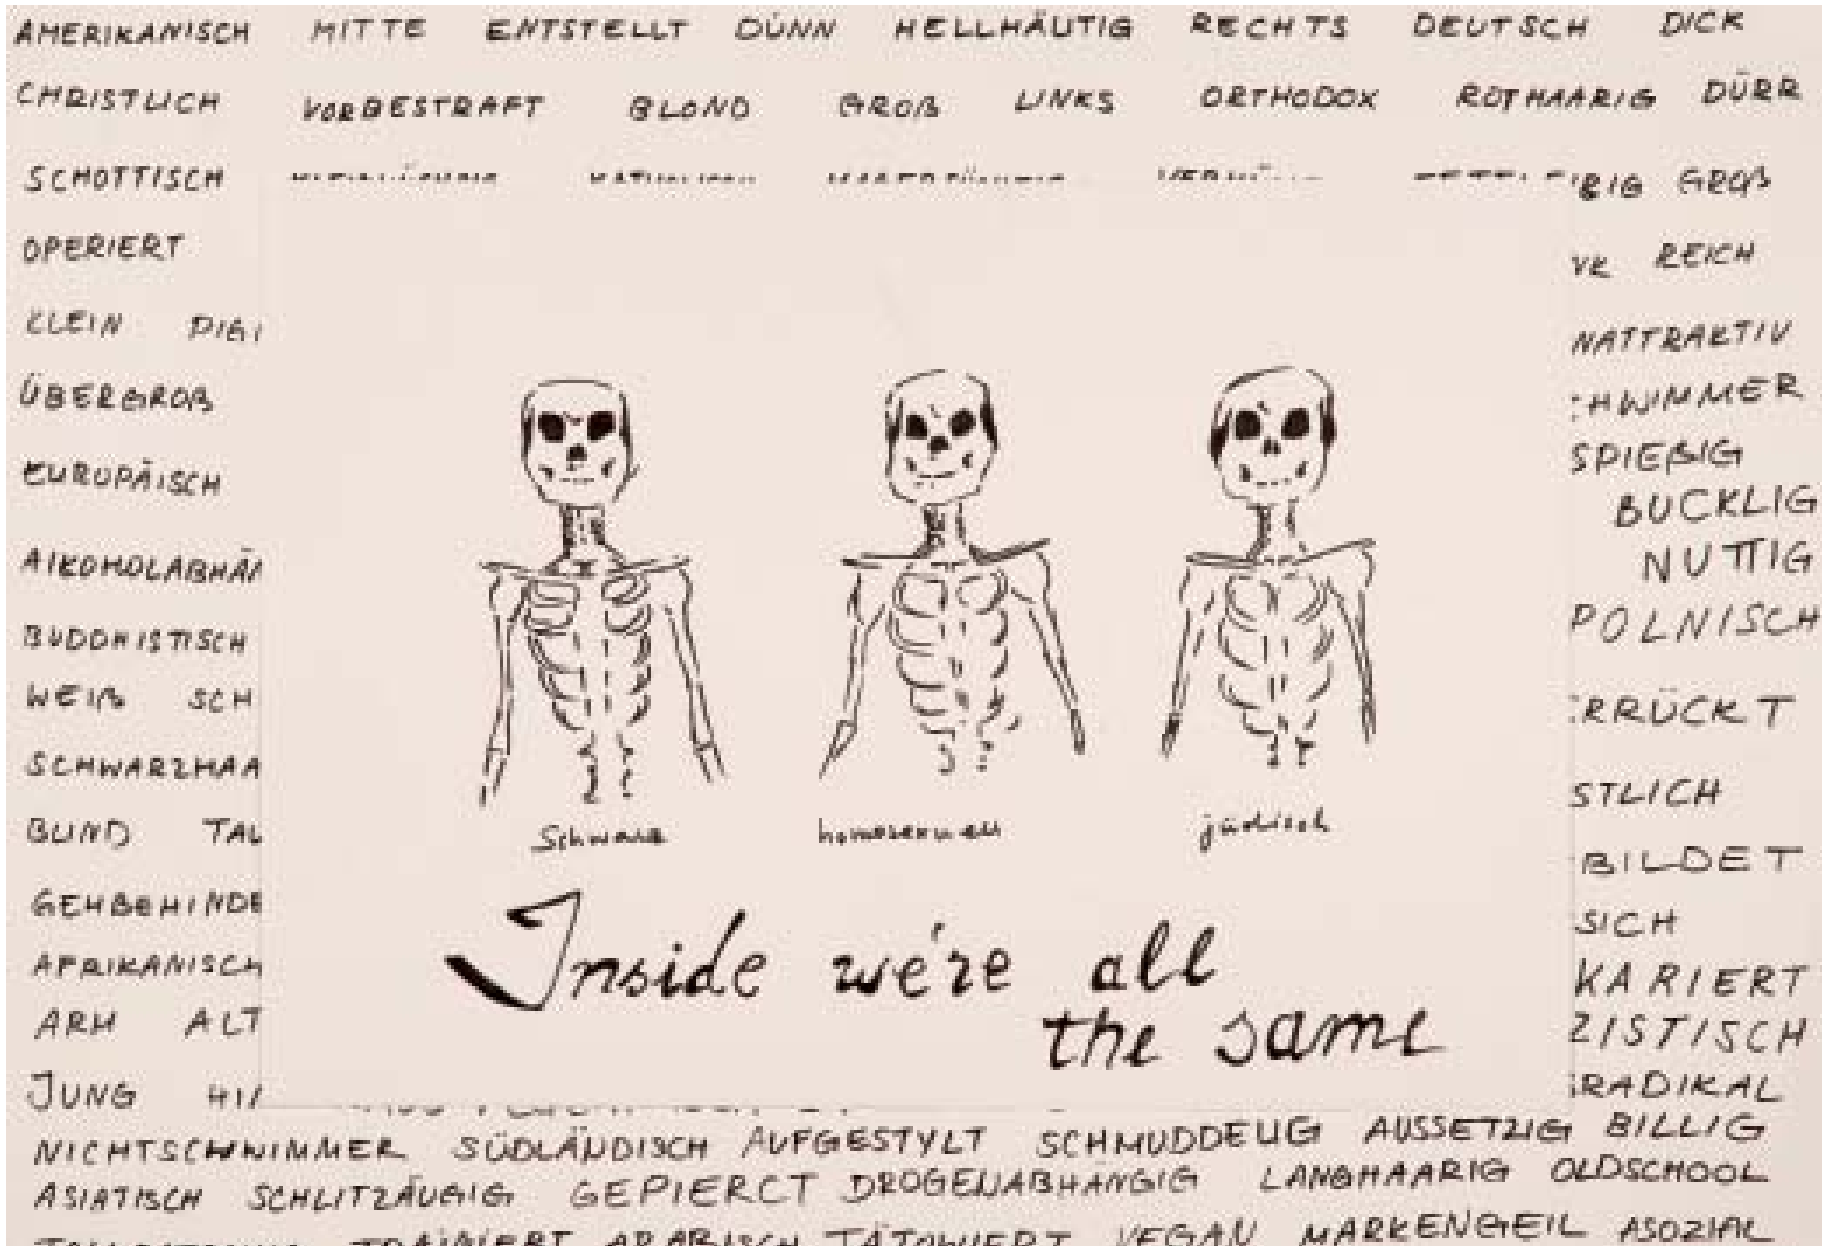 AMERIKANISCH MITTE ENTSTELLT DÜNN HELLHÄUTIG RECHTS DEUTSCH DICK
CHRISTLICH VORBESTRAFT BLOND GROß LINKS ORTHODOX ROTHAARIG DÜRR
SCHOTTISCH RIG GROß
OPERIERT REICH
KLEIN DIGI NATTRAKTIV
ÜBERGROß HWIMMER
EUROPÄISCH SPIEßIG
BUCKLIG
ALKOHOLABHÄN NUTTIG
BUDDHISTISCH POLNISCH
WEIß SCH RRÜCKT
SCHWARZHAA STLICH
BLIND TAU BILDET
schwarz homosexuell jüdisch
GEHBEHINDE SICH
AFRIKANISCH KARIERT
Inside we're all
the same
ARM ALT ZISTISCH
JUNG RADIKAL
NICHTSCHWIMMER SÜDLÄNDISCH AUFGESTYLT SCHMUDDELIG AUSSETZIG BILLIG
ASIATISCH SCHLITZÄUGIG GEPIERCT DROGENABHÄNGIG LANGHAARIG OLDSCHOOL
TRAINIERT ARABISCH TÄTOWIERT VEGAN MARKENGEIL ASOZIAL